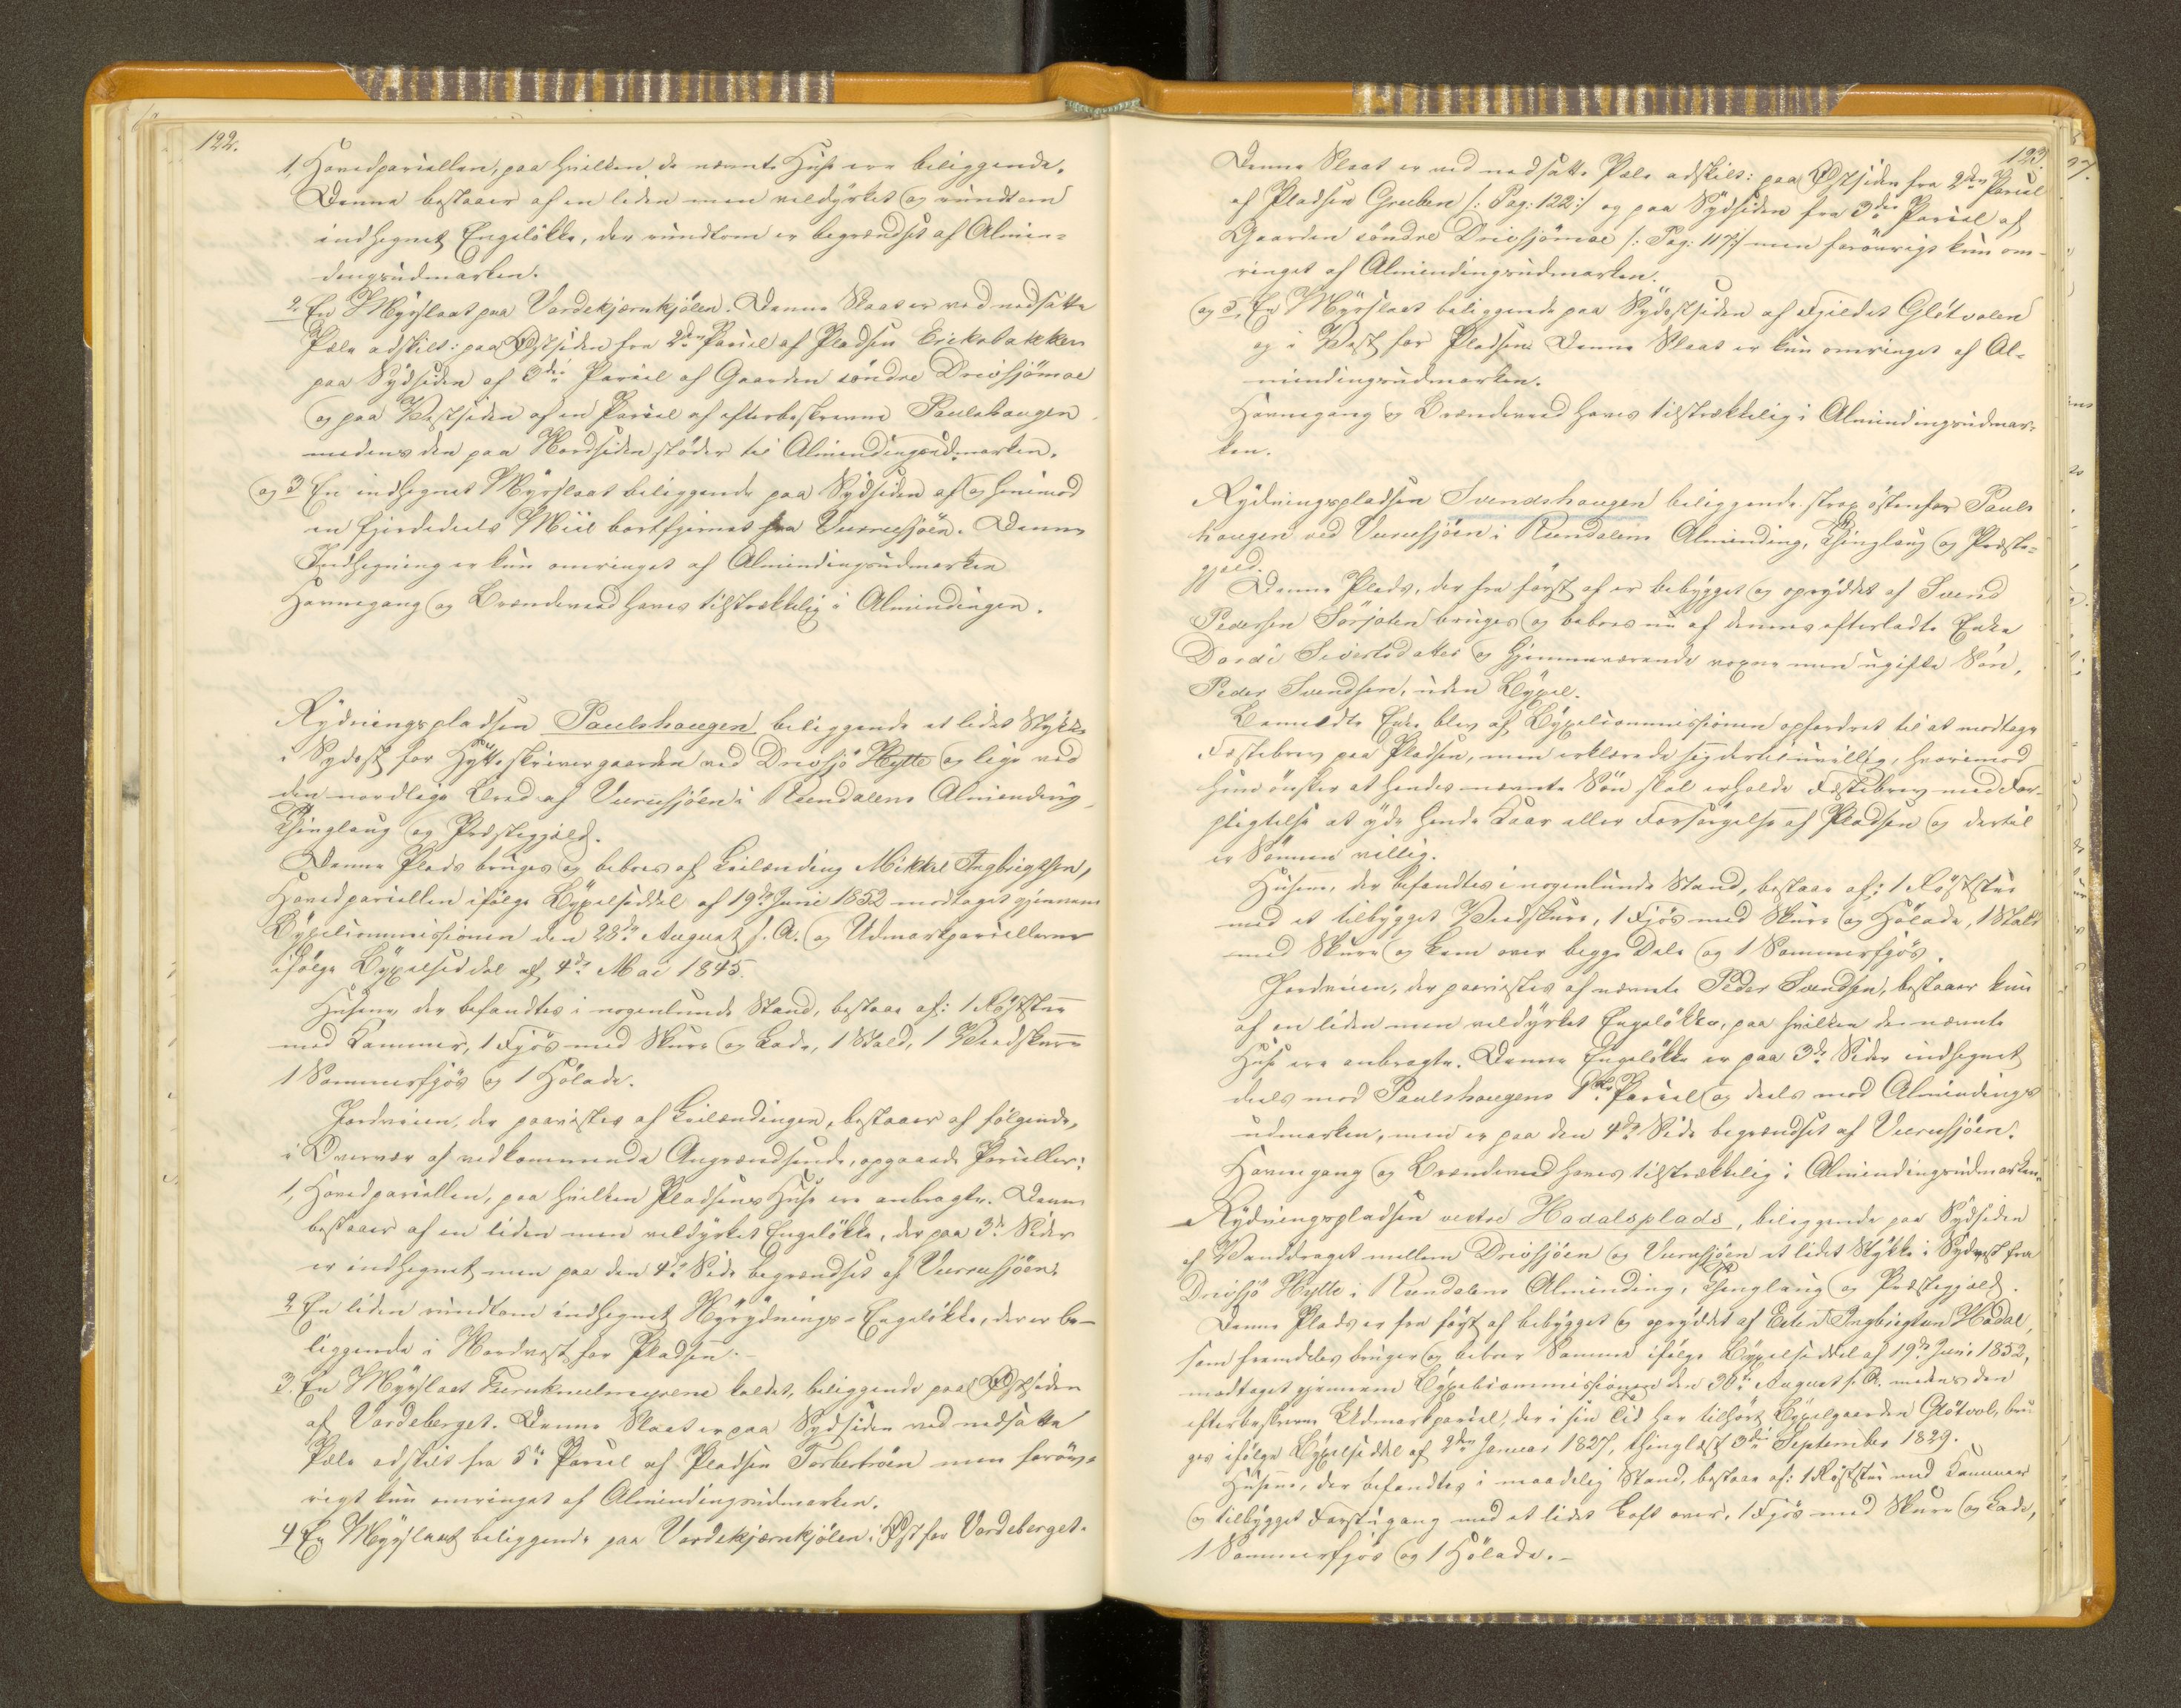 122.
1, Hovedparcellen, paa hvilken de nævnte Huse ere beliggende.
Denne bestaaer af en liden men veldyrket og rundtom
indhegnet Engeløkke, der rundtom er begrændset af Almin-
dingsudmarken.
2. En Myrslaat paa Vordekjærnkjölen. Denne Slaat er ved nedsatte
Pæle adskilt: paa Østsiden fra 2den Parcel af Pladsen Eriksbakken
paa Sydsiden af 3die Parcel af Gaarden söndre Drivsjömoe
og paa Vestsiden af en Parcel af efterbeskrevne Paulshaugen
medens den paa Nordsiden støder til Almindingsudmarken.
og 3 En indhegnet Myrslaat beliggende paa Sydsiden af og henimod
en Fjerdedeels Miil bortfjernet fra Vurrusjöen. Denne
Indhegning er kun omringet af Almindingsudmarken
Havnegang og Brændeved haves tilstrækkelig i Almindingen.
Rydningspladsen Paulshaugen beliggende et lidet Stykke
i Sydost for Hytteskrivergaarden ved Drivsjö Hytte og lige ved
den nordlige Bred af Vurrusjöen i Rendalens Alminding,
Thinglaug og Præstegjæld.
Denne Plads bruges og beboes af Leilænding Mikkel Ingbrigtsen,
Hovedparcellen ifølge Bÿxelseddel af 19de Juni 1852 modtaget gjennem
Bÿxelcommissionen den 28de August s. A. og Udmarksparcellerne
ifølge Bÿxelseddel af 4de Mai 1845.
Husene, der befandtes i nogenlunde Stand, bestaae af: 1 Röststue
med Kammer, 1 Fjös med Skure og Lade, 1 Stald, 1 Vedskure
1 Sommerfjös og 1 Hölade.
Jordveien, der paavistes af Leilændingen, bestaaer af følgende,
i Overvær af vedkommende Angrændsende, opgaaede Parceller:
1, Hovedparcellen, paa hvilken Pladsens Huse ere anbragte. Denne
bestaaer af en liden men veldyrket Engeløkke, der paa 3de Sider
er indhegnet men paa den 4de Side begrændset af Vurrusjöen.
2 En liden rundtom indhegnet Nyrydnings-Engeløkke, der er be-
liggende i Nordvest for Pladsen.-
3. En Myrslaat Furuknulmyrene kaldet, beliggende paa Østsiden
af Vordeberget. Denne Slaat er paa Sydsiden ved nedsatte
Pæle adskilt fra 5te Parcel af Pladsen Torbertröen men foröv-
rigt kun omringet af Almindingsudmarken.
4 En Myrslaat beliggende paa Vordekjærnkjölen i Øst for Vordeberget.
123.
Denne Slaat er ved nedsatte Pæle adskilt: paa Østsiden fra 2den Parcel
af Pladsen Gruben /: Pag: 122:/ og paa Sydsiden fra 3die Parcel af
Gaarden söndre Drivsjömoe /: Pag: 117:/ men forövrigt kun om-
ringet af Almindingsudmarken.
og 5, En Myrslaat beliggende paa Sydostsiden af Fjeldet Glötvolen
og i Vest for Pladsen. Denne Slaat er kun omringet af Al-
mindingsudmarken.
Havnegang og Brændeved haves tilstrækkelig i Almindingsudmar-
ken.
Rydningspladsen Svendshaugen beliggende strax östenfor Pauls
haugen ved Vurrusjöen i Rendalens Alminding, Thinglaug og Præste-
gjæld.
Denne Plads, der fra først af er bebygget og opryddet af Svend
Pedersen Sörjoten bruges og beboes nu af dennes efterladte Enke
Dordi Sivertsdatter og hjemmeværende voxne men ugifte Sön,
Peder Svendsen, uden Bÿxel.
Bemeldte Enke blev af Bÿxelcommissionen opfordret til at modtage
Fæstebrev paa Pladsen, men erklærede sig dertil uvillig, hvorimod
hun önsker at hendes nævnte Sön skal erholde Fæstebrev med For-
pligtelse at yde hende Kaar eller Forsörgelse af Pladsen og dertil
er Sönnen villig.
Husene, der befandtes i nogenlunde Stand, bestaae af: 1 Röststue
med et tilbygget Vedskure, 1 Fjös med Skure og Hölade, 1 Stald
med Skure og Lem over begge Dele og 1 Sommerfjös.
Jordveien, der paavistes af nævnte Peder Svendsen, bestaaer kun
af en liden men veldyrket Engeløkke, paa hvilken de nævnte
Huse ere anbragte. Denne Engeløkke er paa 3de Sider indhegnet
deels mod Paulshaugens 1ste Parcel og deels mod Almindings
udmarken, men er paa den 4de Side begrændset af Vurrusjöen.
Havnegang og Brændeved haves tilstrækkelig i Almindingsudmarken.
Rydningspladsen vestre Hodalsplads, beliggende paa Sydsiden
af Vanddraget mellem Drivsjöen og Vurrusjöen et lidet Stykke i Sydvest fra
Drivsjö Hytte i Rendalens Alminding, Thinglaug og Præstegjæld.
Denne Plads er fra først af bebygget og opryddet af Esten Ingbrigtsen Hodal,
som fremdeles bruger og beboer Samme ifølge Bÿxelseddel af 19de Juni 1852,
modtaget gjennem Bÿxelcommissionen den 30te August s. A. medens den
efterbeskrevne Udmarksparcel, der i sin Tid har tilhørt Bÿxelgaarden Glötvol, bru
ges ifølge Bÿxelseddel af 2den Januar 1827, thinglæst 3die September 1829.
Husene, der befandtes i maadelig Stand, bestaae af: 1 Röststue med Kammer
og tilbygget Forstugang med et lidet Loft over, 1 Fjös med Skure og Lade,
1 Sommerfjös og 1 Hölade.-